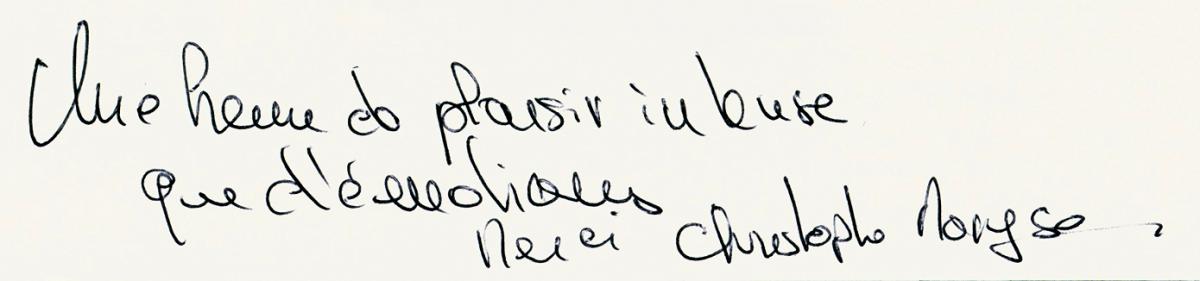 Une heure de plaisir intense
que d'émotions
Merci Christophe Maryse